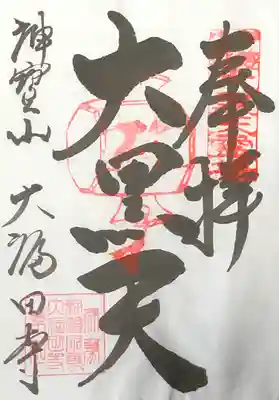 奉拝
大黒天
神寳山 大福田寺